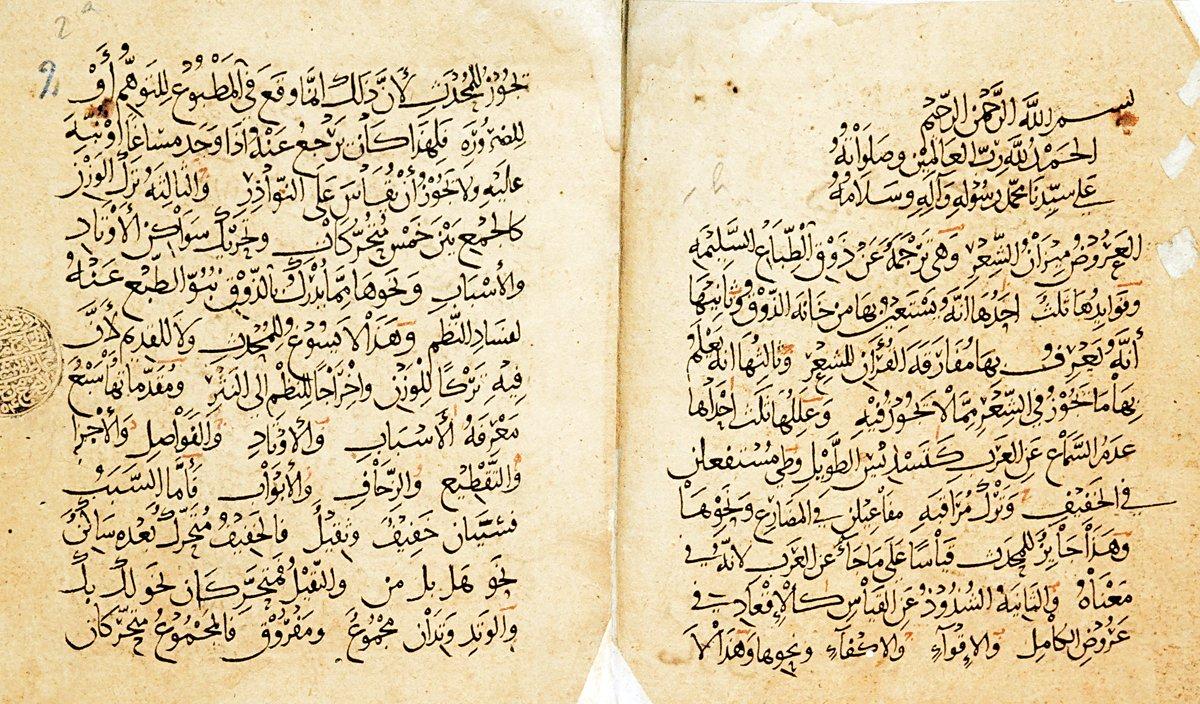 بسم الله الرحمن الرحيم
الحمد لله رب العالمين وصلواته
على سيدنا محمد رسوله وآله وسلامه
العروض ميزان الشعر وهي ترجمة عن ذوق الطباع السليمة
وفوايدها ثلث احدها انه يستعين بها من خانه الذوق وثانيها
أنه يعرف بها مفارقة القرآن للشعر وثالثها انه يعلم
بها ما يجوز في الشعر مما لا يجوز فيه وعللها ثلث احداها
عدم السماع عن العرب كتسديس الطويل وطي مستفعلن
في الخفيف وترك مراقبة مفاعيلن في المضارع ونحوها
وهذا جايز للمحدث قياسا على ما جاء عن العرب لانه في
معناه والثانية الشذوذ عن القياس كالإقعاد في
عروض الكامل والإقواء والاكفاء ونحوها وهذا لا
يجوز للمحدث لأن ذلك انما وقع في المطبوع للتوهم أو
للضرورة فلهذا كان يرجع عنه اذا وجد مساغا او نبه
عليه ولا يجوز أن يقاس على النوادر والثالثة ترك الوزن
كالجمع بين خمس متحركات وتحريك سواكن الأوتاد
والأسباب ونحوها مما يدرك بالذوق نبو الطبع عنه
لفساد النظم وهذا لا يسوغ للمحدث ولا للقديم لأن
فيه تركا للوزن واخراجا للنظم الى النثر ومقدماتها سبع
معرفة الأسباب والاوتاد والفواصل والأجزا
والتقطيع والزحاف والأبواب فأما السبب
فسببان خفيف وثقيل فالخفيف متحرك بعده ساكن
نحو هل بل من والثقيل متحركان نحو لك بك
والوتد وتدان مجموع ومفروق فالمجموع متحركان